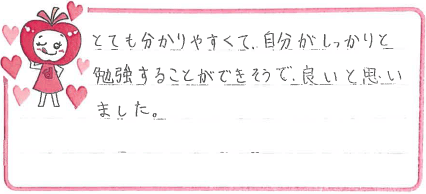 とても分かりやすくて、自分がしっかりと
勉強することができそうで、良いと思い
ました。